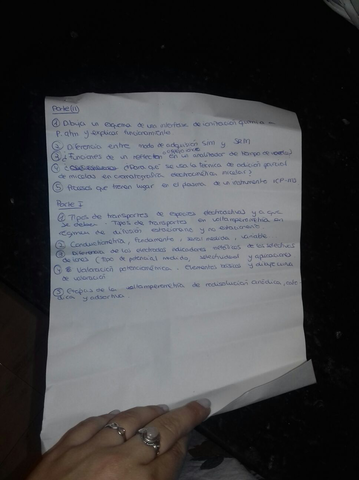 Parte (II)
① Dibuja un esquema de una interfase de ionización química a
P. atm y explicar funcionamiento
② Diferencia entre modo de adquisición SIM y SRM
③ Funciones de un reflectrón en un analizador de tiempo de vuelo
④ ¿Para qué se usa la técnica de adición
de mezclas en cromatografía
⑤ Procesos que tienen lugar en el plasma de un instrumento ICP-MS
Parte I
① Tipos de transportes de especies electroactivas y a que
se deben. Tipos de transportes en voltamperometría en
régimen de difusión estacionario y no estacionario
② Conductimetría, fundamento, medida, variable
③ Diferencia de los electrodos indicadores metálicos de los selectivos
de iones (tipo de potencial medido, selectividad y aplicaciones
④ Valoración potenciométrica. Elementos básicos y dibuje curva
de valoración
⑤ Etapas de la voltamperometría de redisolución anódica, cató
dica y adsortiva